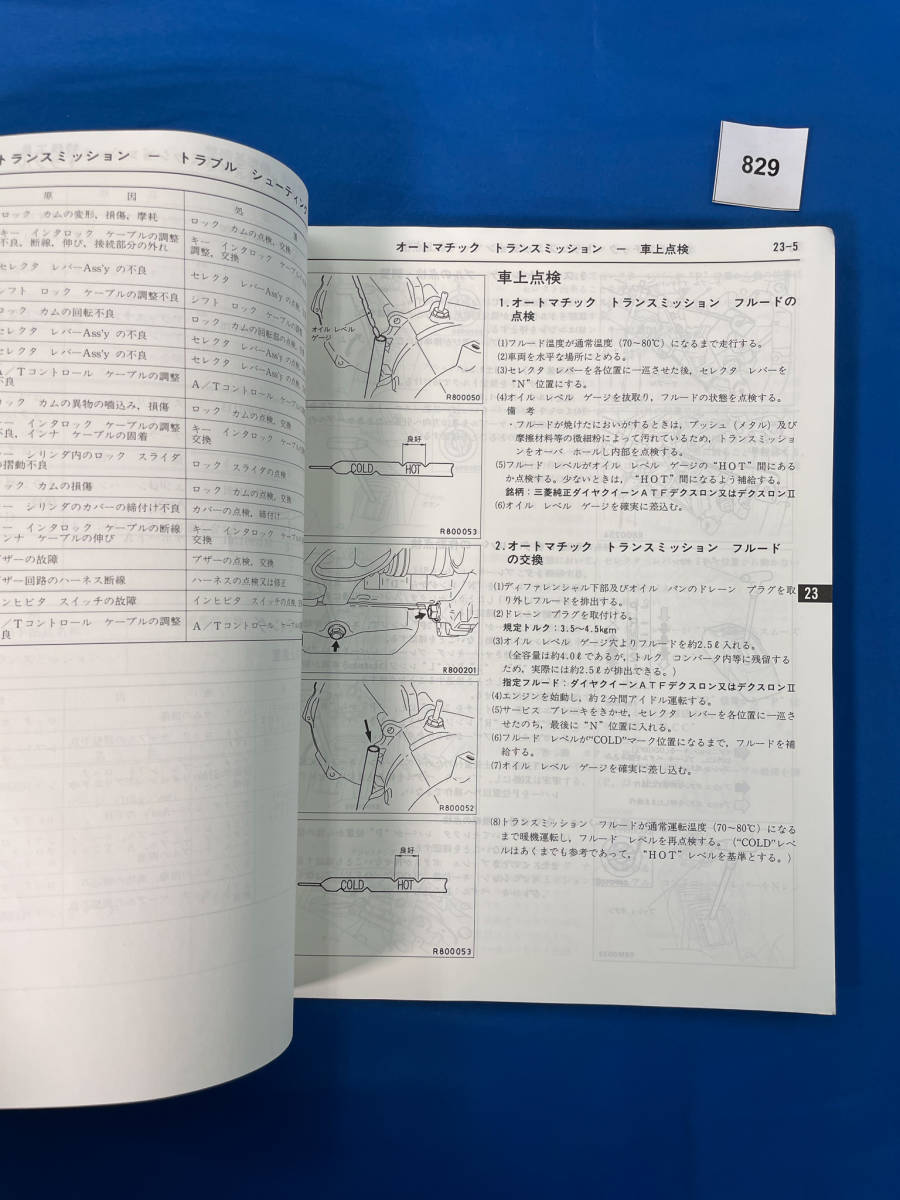 829
トランスミッション － トラブル シューティング
原 因
処
ロック カムの変形，損傷，摩耗
ロック カムの点検，交換
キー インタロック ケーブルの調整
不良，断線，伸び，接続部分の外れ
キー インタロック ケーブルの
調整，交換
セレクタ レバーAss'y の不良
セレクタ レバーAss'y の点検
シフト ロック ケーブルの調整不良
シフト ロック ケーブルの
ロック カムの回転不良
ロック カムの回転部の点検
セレクタ レバーAss'y の不良
セレクタ レバーAss'y の点検
セレクタ レバーAss'y の不良
セレクタ レバーAss'y の点検
A／Tコントロール ケーブルの調整
不良
A／Tコントロール ケーブルの
ロック カムの異物の噛込み，損傷
ロック カムの点検，交換
キー インタロック ケーブルの調整
不良，インナ ケーブルの固着
キー インタロック ケーブルの
交換
キー シリンダ内のロック スライダ
の摺動不良
ロック スライダの点検
ロック カムの損傷
ロック カムの点検，交換
キー シリンダのカバーの締付け不良
カバーの点検，締付け
キー インタロック ケーブルの断線
インナ ケーブルの伸び
キー インタロック ケーブルの
交換
ブザーの故障
ブザーの点検，交換
ブザー回路のハーネス断線
ハーネスの点検又は修正
インヒビタ スイッチの故障
インヒビタ スイッチの点検，
A／Tコントロール ケーブルの調整
不良
A／Tコントロール ケーブルの
オートマチック トランスミッション － 車上点検
23-5
オイル レベル
ゲージ
R800050
良好
COLD
HOT
R800053
R800201
R800052
良好
COLD
HOT
R800053
車上点検
1．オートマチック トランスミッション フルードの
点検
(1)フルード温度が通常温度（70～80℃）になるまで走行する。
(2)車両を水平な場所にとめる。
(3)セレクタ レバーを各位置に一巡させた後，セレクタ レバーを
“N”位置にする。
(4)オイル レベル ゲージを抜取り，フルードの状態を点検する。
備 考
・フルードが焼けたにおいがするときは，ブッシュ（メタル）及び
摩擦材料等の微細粉によって汚れているため，トランスミッショ
ンをオーバ ホールし内部を点検する。
(5)フルード レベルがオイル レベル ゲージの“HOT”間にある
か点検する。少ないときは，“HOT”間になるよう補給する。
銘柄：三菱純正ダイヤクイーンＡＴＦデクスロン又はデクスロンⅡ
(6)オイル レベル ゲージを確実に差込む。
2．オートマチック トランスミッション フルード
の交換
(1)ディファレンシャル下部及びオイル パンのドレーン プラグを取
り外しフルードを排出する。
(2)ドレーン プラグを取付ける。
規定トルク：3.5～4.5kgm
(3)オイル レベル ゲージ穴よりフルードを約2.5ℓ入れる。
（全容量は約4.0ℓであるが，トルク コンバータ内等に残留する
ため，実際には約2.5ℓが排出できる。）
指定フルード：ダイヤクイーンＡＴＦデクスロン又はデクスロンⅡ
(4)エンジンを始動し，約２分間アイドル運転する。
(5)サービス ブレーキをきかせ，セレクタ レバーを各位置に一巡さ
せたのち，最後に“N”位置に入れる。
(6)フルード レベルが“COLD”マーク位置になるまで，フルードを補
給する。
(7)オイル レベル ゲージを確実に差し込む。
(8)トランスミッション フルードが通常運転温度（70～80℃）になる
まで暖機運転し，フルード レベルを再点検する。（“COLD”レベ
ルはあくまでも参考であって，“HOT”レベルを基準とする。）
23